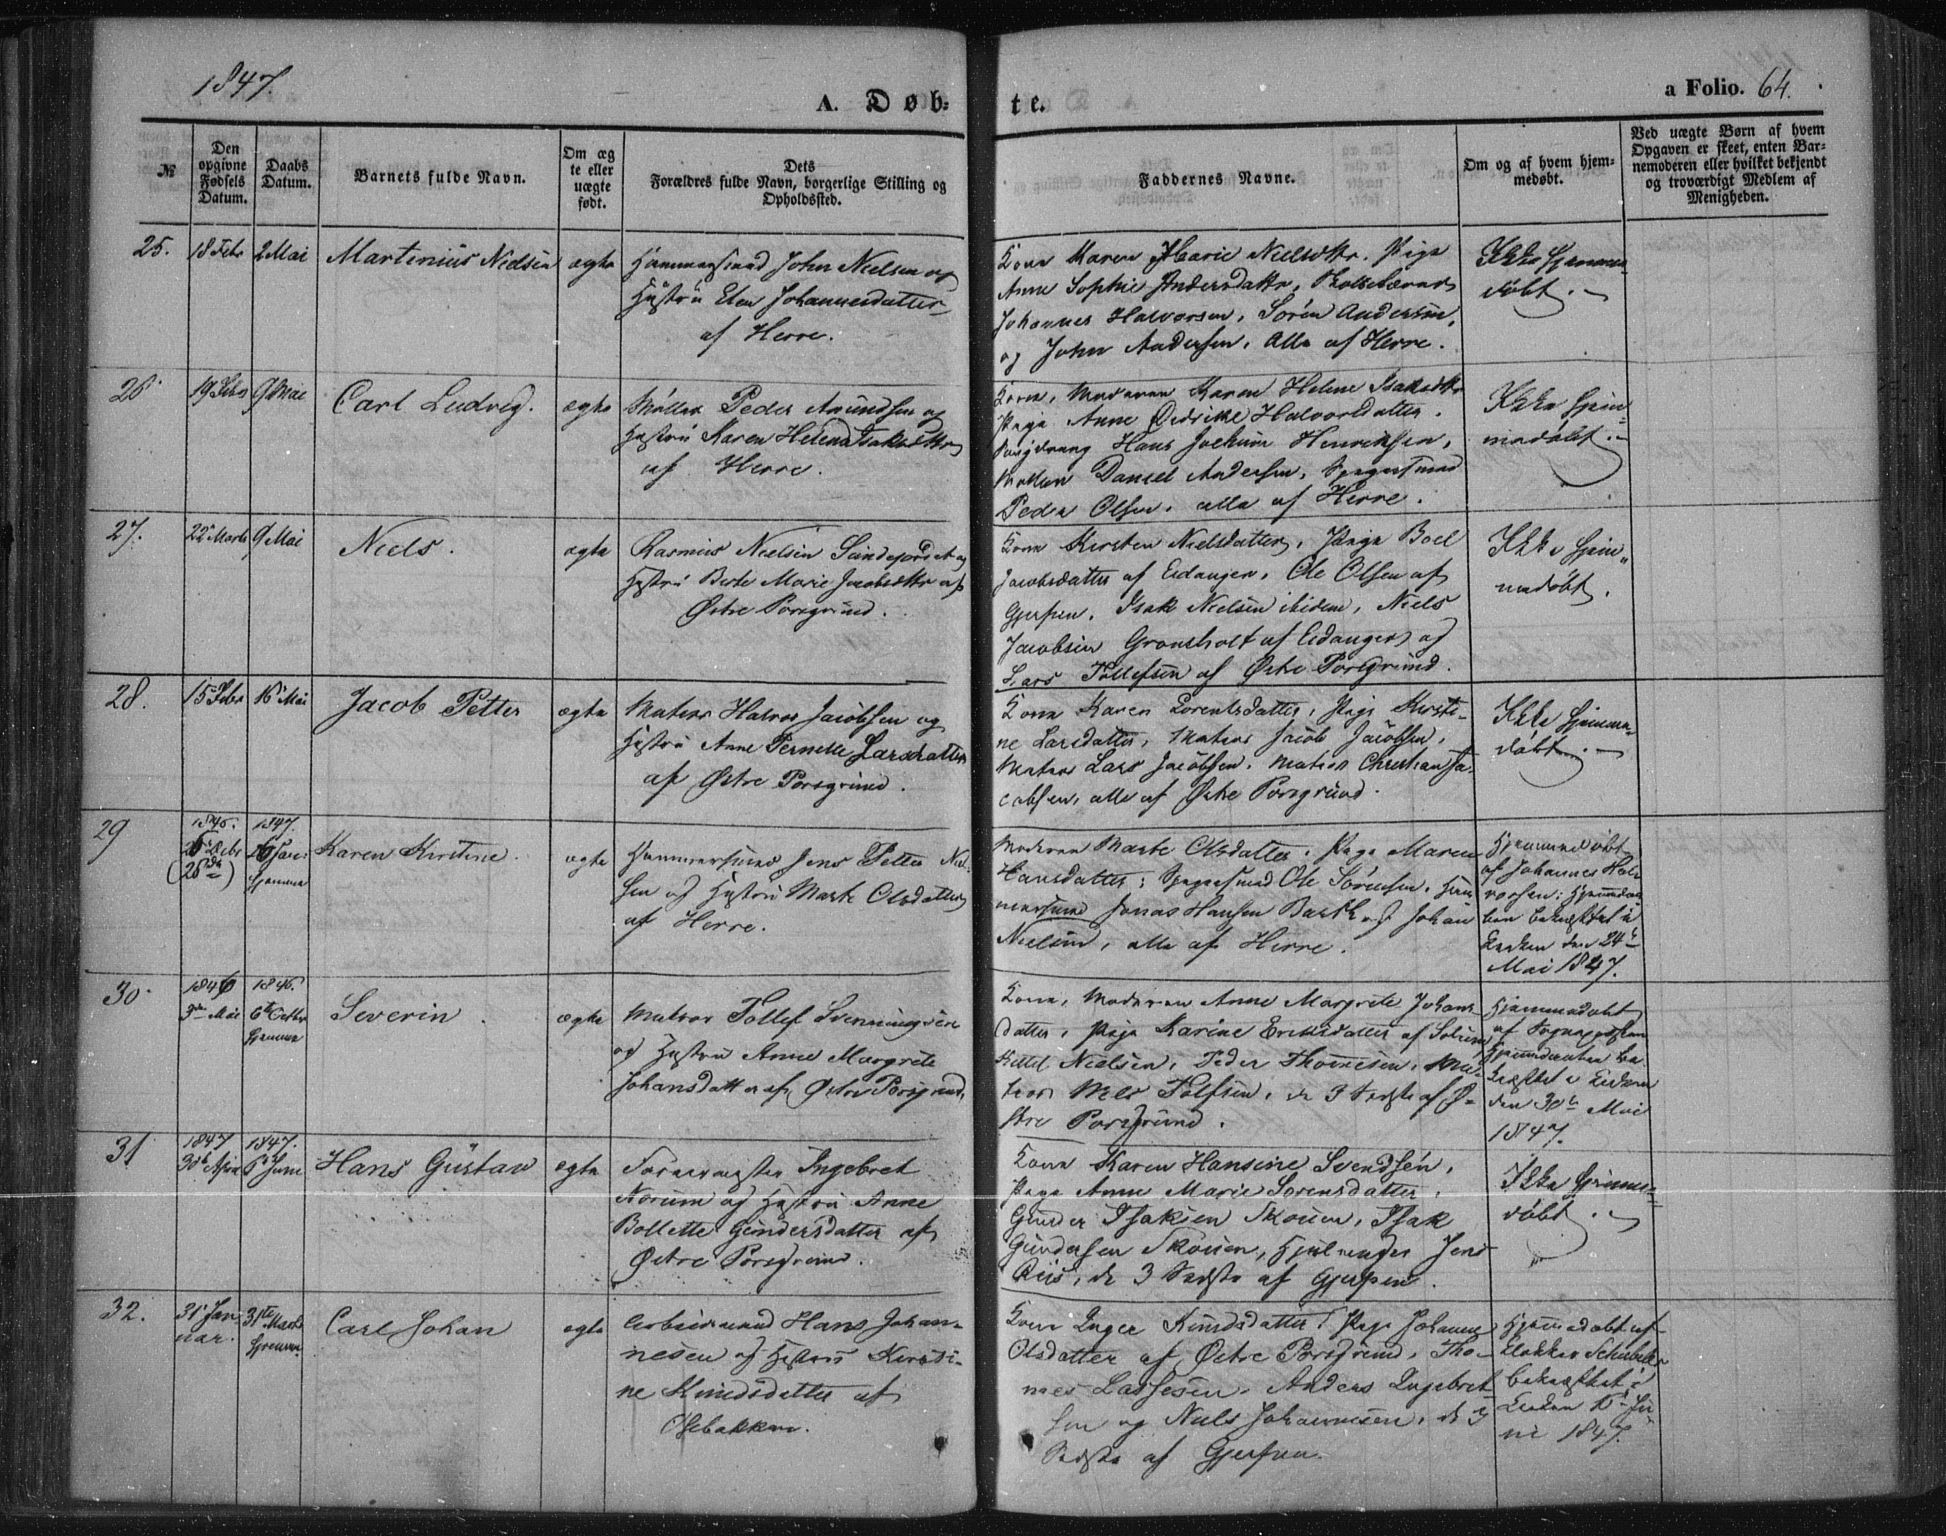 1847.
A. Døb-
te.
a Folio. 64.
№
Den
opgivne
Fødsels
Datum.
Daabs
Datum.
Barnets fulde Navn.
Om æg
te eller
uægte
født.
Dets
Forældres fulde Navn, borgerlige Stilling og
Opholdssted.
Faddernes Navne.
Om og af hvem hjem-
medøbt.
Ved uægte Børn af hvem
Opgaven er skeet, enten Bar-
nemoderen eller hvilket bekjendt
og troværdigt Medlem af
Menigheden.
25.
18 Febr
2 Mai
Martinius Nielsen
ægte
Hammersmed John Nielsen og
Hustru Elen Johannesdatter
af Herre.
Kone Maren Marie Nielsdttr. Pige
Anne Sophie Andersdattr,
Johannes Halvorsen, Sören Andersen,
og John Andersen, Alle af Herre.
Ikke hjemme-
døbt.
26
19 Febr
9 Mai
Carl Ludvig.
ægte
Møller Peder Amundsen og
Hustru Karen Helene Isaksdttr
af Herre.
Konen, Moderen Karen Helene Isaksdttr
Pige Anne Didrikke Halvorsdatter.
Hans Jochum Henriksen,
Møller Daniel Andersen,
Peder Olsen. alle af Herre.
Ikke hjem-
medøbt.
27.
22 Marts
9 Mai
Niels.
ægte
Rasmus Nielsen og
Hustru Berte Marie Jacobsdttr af
Østre Porsgrund.
Kone Kirsten Nielsdatter, Pige Boel
Jacobsdatter af Eidanger, Ole Olsen af
Gjerpen. Isak Nielsen ibidem, Niels
Jacobsen Gronsholt af Eidanger og
Lars Tollefsen af Østre Porsgrund.
Ikke hjem-
medøbt.
28.
15 Febr
16 Mai
Jacob Petter
ægte
Matros Halvor Jacobsen og
Hustru Anne Pernelle Larsdatter
af Østre Porsgrund.
Kone Karen Lorentsdatter, Pige Kirsti-
ne Larsdatter, Matros Jacob Jacobsen,
Matros Lars Jacobsen. Matros Christian Ja-
cobsen, alle af Østre Porsgrund.
Ikke hjemme-
døbt.
29
1846.
1847.
hjemme
Karen Kirstine.
ægte
Hammersmed Jens Petter Niel-
sen og Hustru Marte Olsdatter
af Herre.
Moderen Marte Olsdatter. Pige Maren
Hansdatter; Ole Sørensen, Ham-
mersmed Jonas Hansen Barth og Johan
Nielsen, alle af Herre.
Hjemmedøbt
af Johannes Hal-
vorsen; Hjemmedaa-
ben bekræftet i
Kirken den 24de
Mai 1847.
30.
1846
3die Mai
1846.
6te Octbr
hjemme
Severin.
ægte
Matros Tollef Svenningsen
og Hustru Anne Margrete
Johansdatter af Østre Porsgrund.
Kone, Moderen Anne Margrete Johans-
datter, Pige Karine Eriksdatter af Solum,
Kittel Nielsen, Peder Thomesen, Ma-
tros Niels Tolfsen, de 3 Sidste af Ø-
stre Porsgrund.
Hjemmedøbt
af Sognepræsten
Hjemmedaaben be-
kræftet i Kirken
den 30te Mai
1847.
31
1847
30te April
1847.
6te Juni
Hans Gustav
ægte
Ingebret
Norum og Hustru Anne
Bollette Gundersdatter af
Østre Porsgrund.
Kone Karen Hansine Svendsen,
Pige Anne Marie Sorensdatter,
Gunder Isaksen Skouen, Isak
Gundersen Skouen, Jens
Riis, de 3 Sidste af Gjerpen.
Ikke hjemme-
døbt.
32.
31 Jan-
uar.
31te Marts
hjemme
Carl Johan
ægte
Arbeidsmand Hans Johan-
nesen og Hustru Kirsti-
ne Knudsdatter af
Osebakken.
Kone Inger Knudsdatter, Pige Johanne
Olsdatter af Østre Porsgrund, Tho-
mes Lassesen. Anders Ingebret-
sen og Niels Johannesen, de 3
Sidste af Gjerpen.
Hjemmedøbt af
Klokker
bekræftet i
Kirken Ju-
ni 1847.